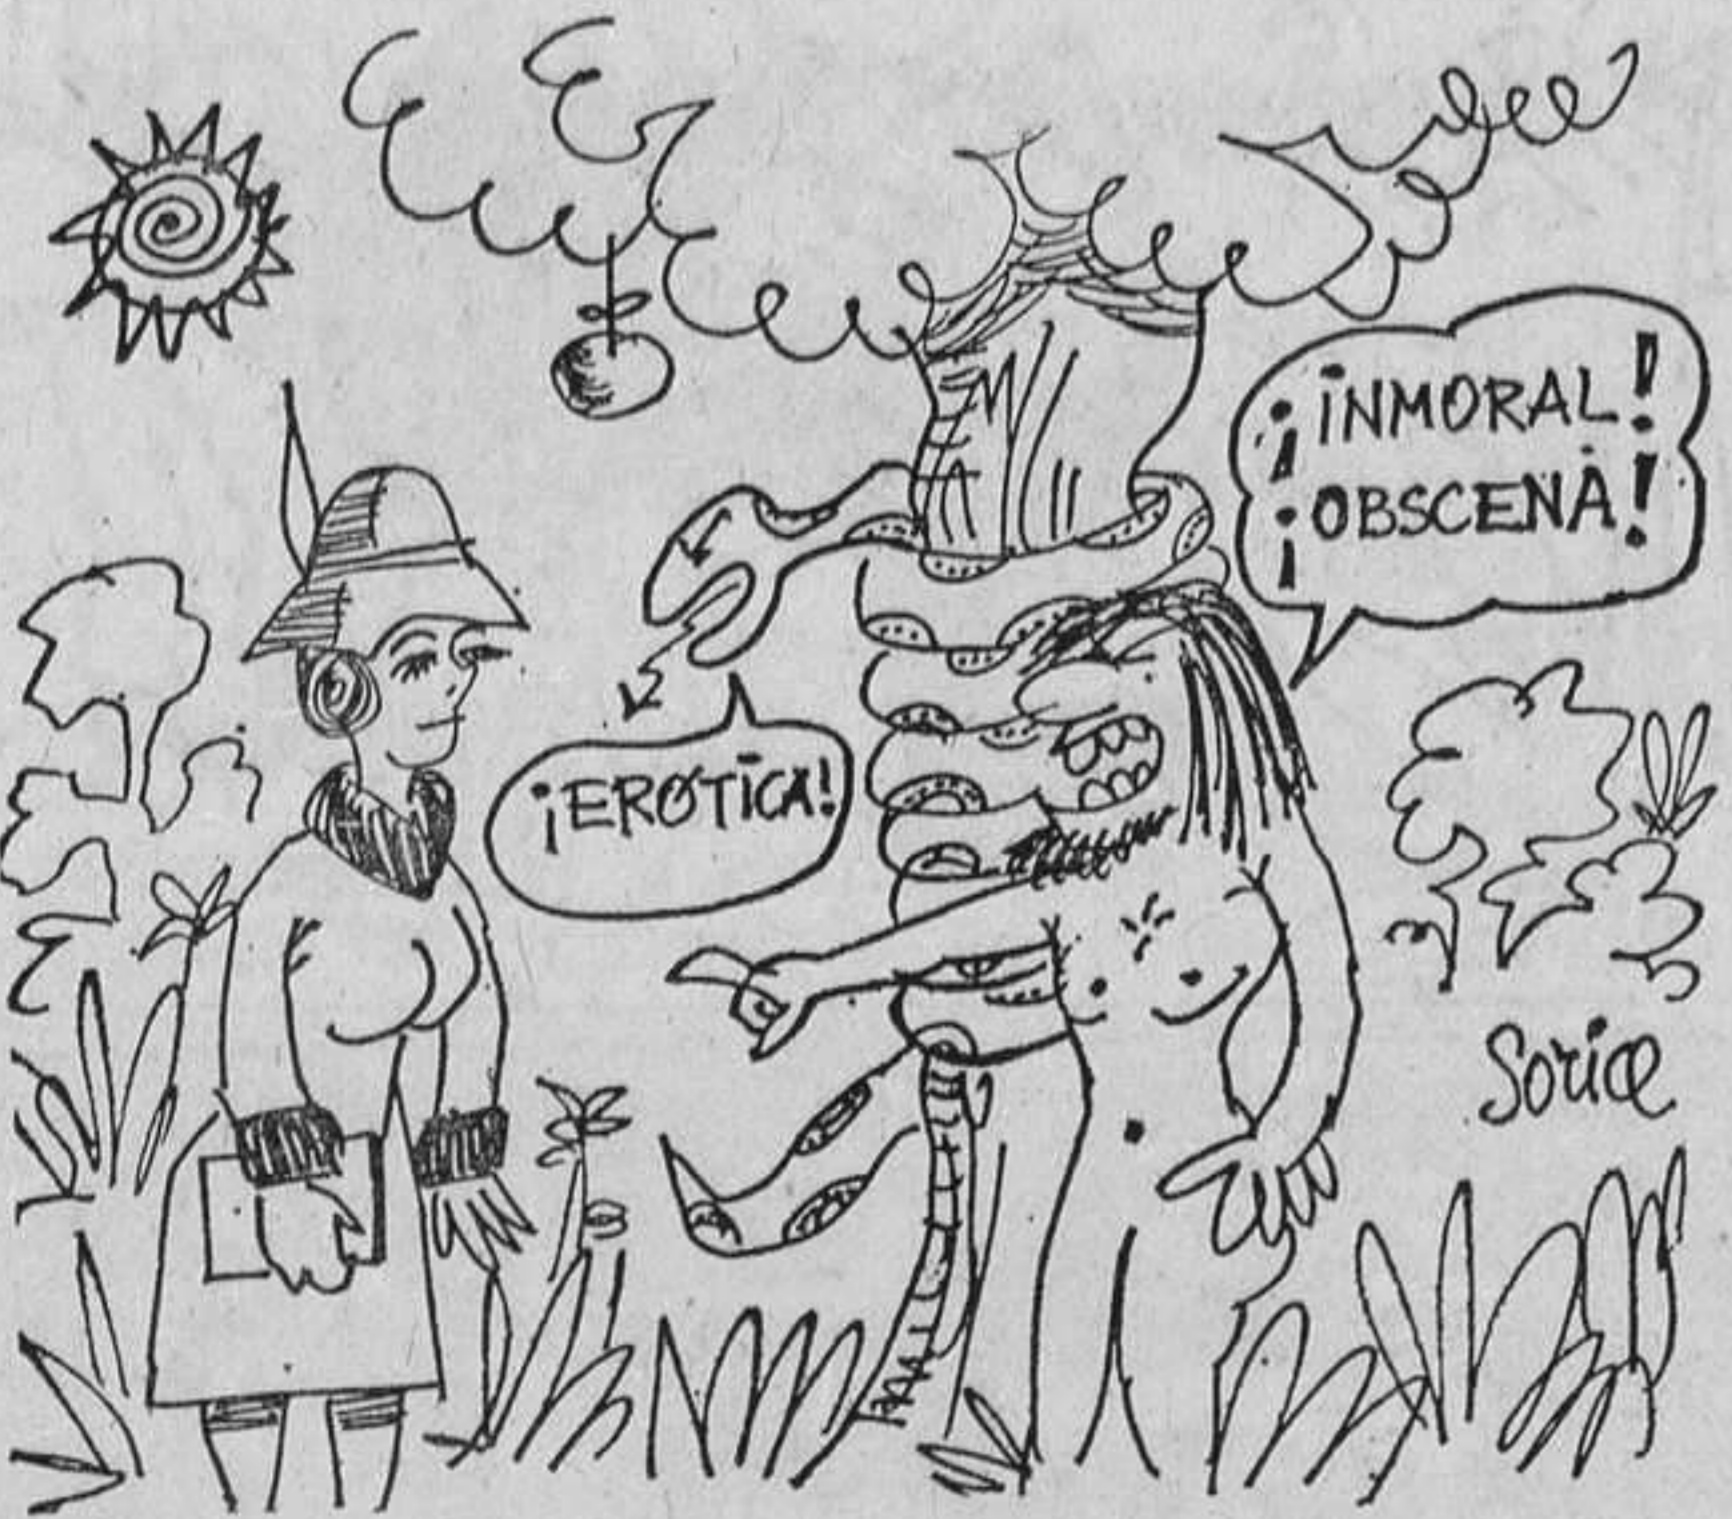 ¡INMORAL!
¡OBSCENA!
¡EROTICA!
Sorice